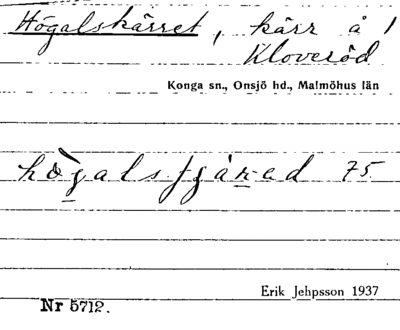 Högalskärret, kärr å 1
Kloveröd
Konga sn., Onsjö hd., Malmöhus län
75
Erik Jehpsson 1937
Nr 5712.